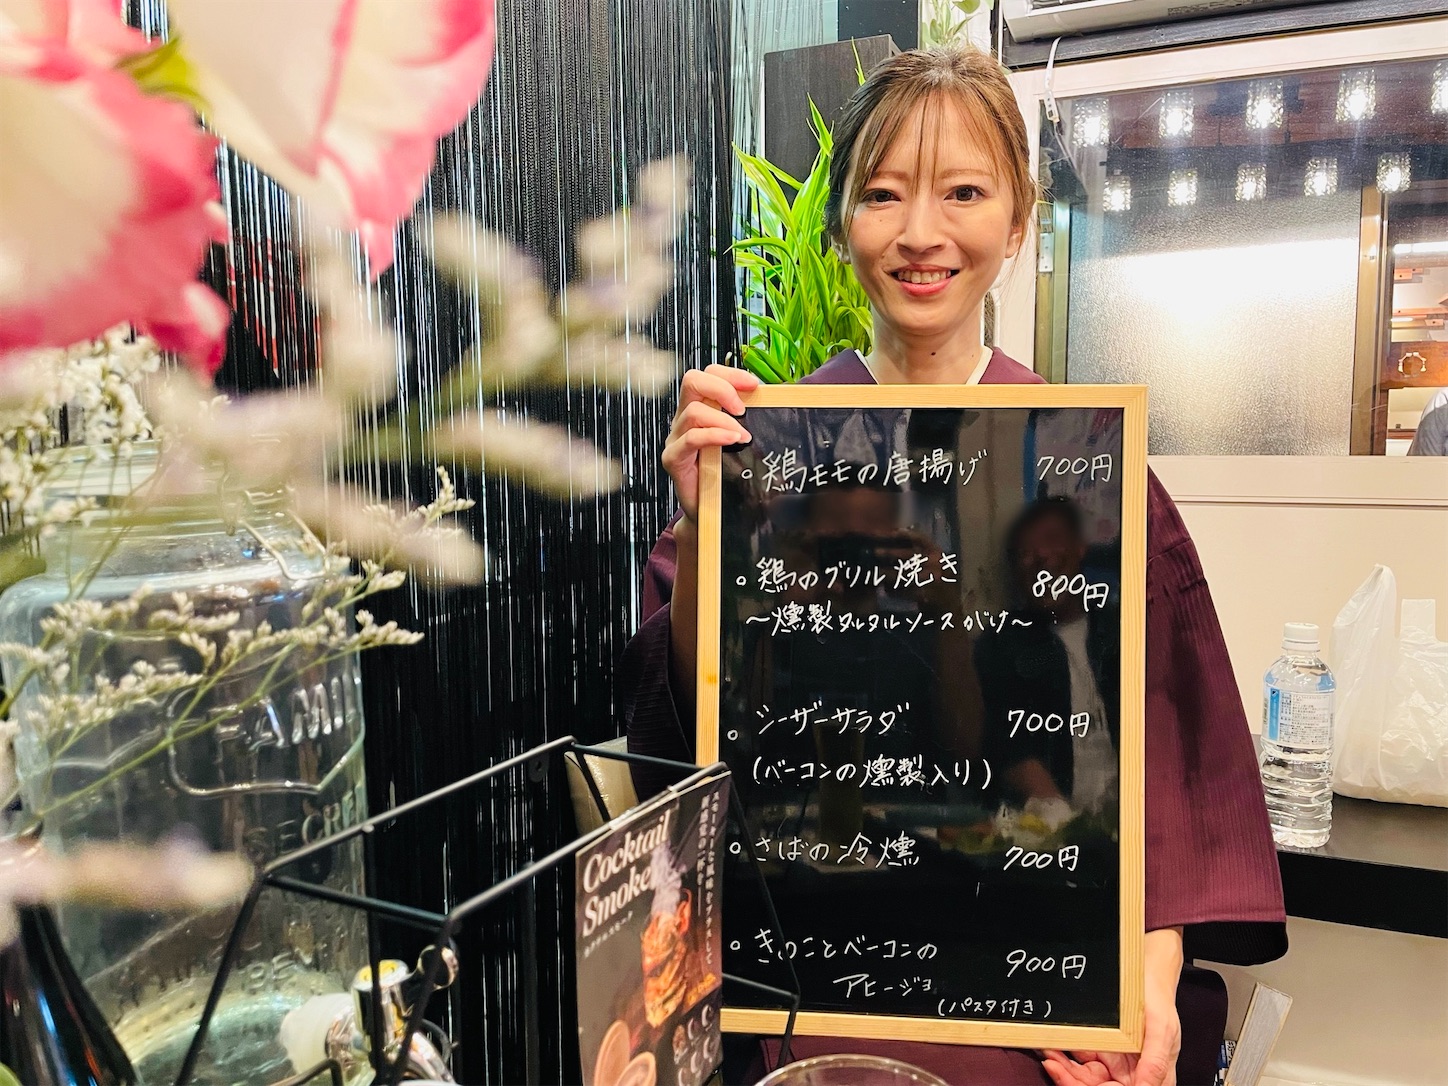 鶏モモの唐揚げ 700円
鶏のグリル焼き 800円
〜燻製タルタルソースがけ〜
シーザーサラダ 700円
(ベーコンの燻製入り)
さばの冷燻 700円
きのことベーコンの 900円
アヒージョ
(パスタ付き)
Cocktail
Smoke
カクテルスモーク